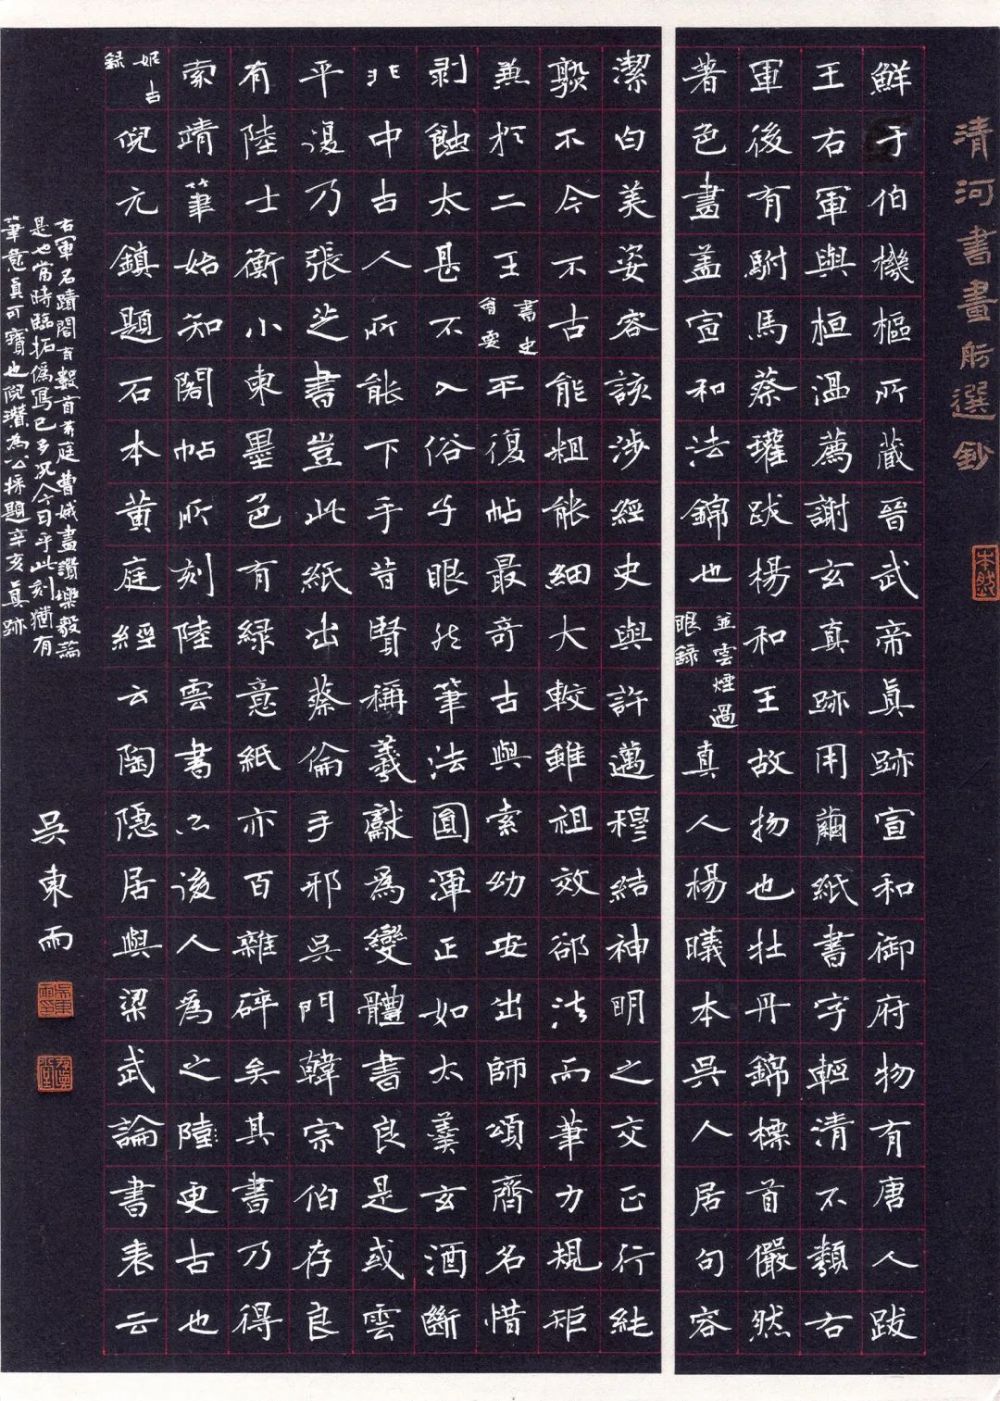 清河書畫舫選鈔
鮮于伯機樞所藏晉武帝真跡宣和御府物有唐人跋
王右軍與桓溫薦謝玄真跡用繭紙書字輕清不類右
軍後有駙馬蔡瓘跋楊和王故物也牡丹錦標首儼然
著色畫蓋宣和法錦也並雲煙過眼錄真人楊曦本吳人居句容
潔白美姿容該涉經史與許邁穆結神明之交正行純
熟不今不古能粗能細大較雖祖效郤法而筆力規矩
兼於二王書史會要平復帖最奇古與索幼安出師頌齊名惜
剥蝕太甚不入俗子眼然筆法圓渾正如太羹玄酒斷
非中古人所能下手昔賢稱羲獻為變體書良是或雲
平復乃張芝書豈此紙出蔡倫手邪吳門韓宗伯存良
有陸士衡小柬墨色有綠意紙亦百雜碎矣其書乃得
索靖筆始知閣帖所刻陸雲書亦後人為之陸更古也
妮古錄倪元鎮題石本黃庭經云陶隱居與梁武論書表云
右軍名蹟閤有數首黃庭曹娥畫讚樂毅論
是也當時臨拓僞寫已多況今日乎此刻猶有
筆意真可寶也倪瓚為公採題辛亥真跡
吳東雨